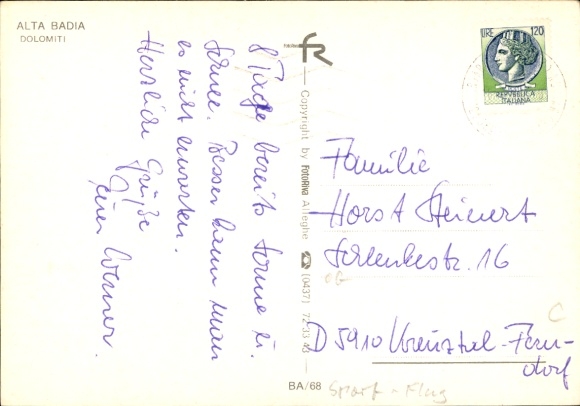 ALTA BADIA
DOLOMITI
8 Tage bereits Sonne u.
Schnee. Besser kann man
es nicht erwarten.
Herzliche Grüße
Werner
fR
Copyright by FOTORIVA Alleghe (0437) 72 33 43
LIRE 120
REPVBBLICA
ITALIANA
Familie
Horst Steinert
16
D 5910 Kreuztal-Fern-
dorf
BA/68
C